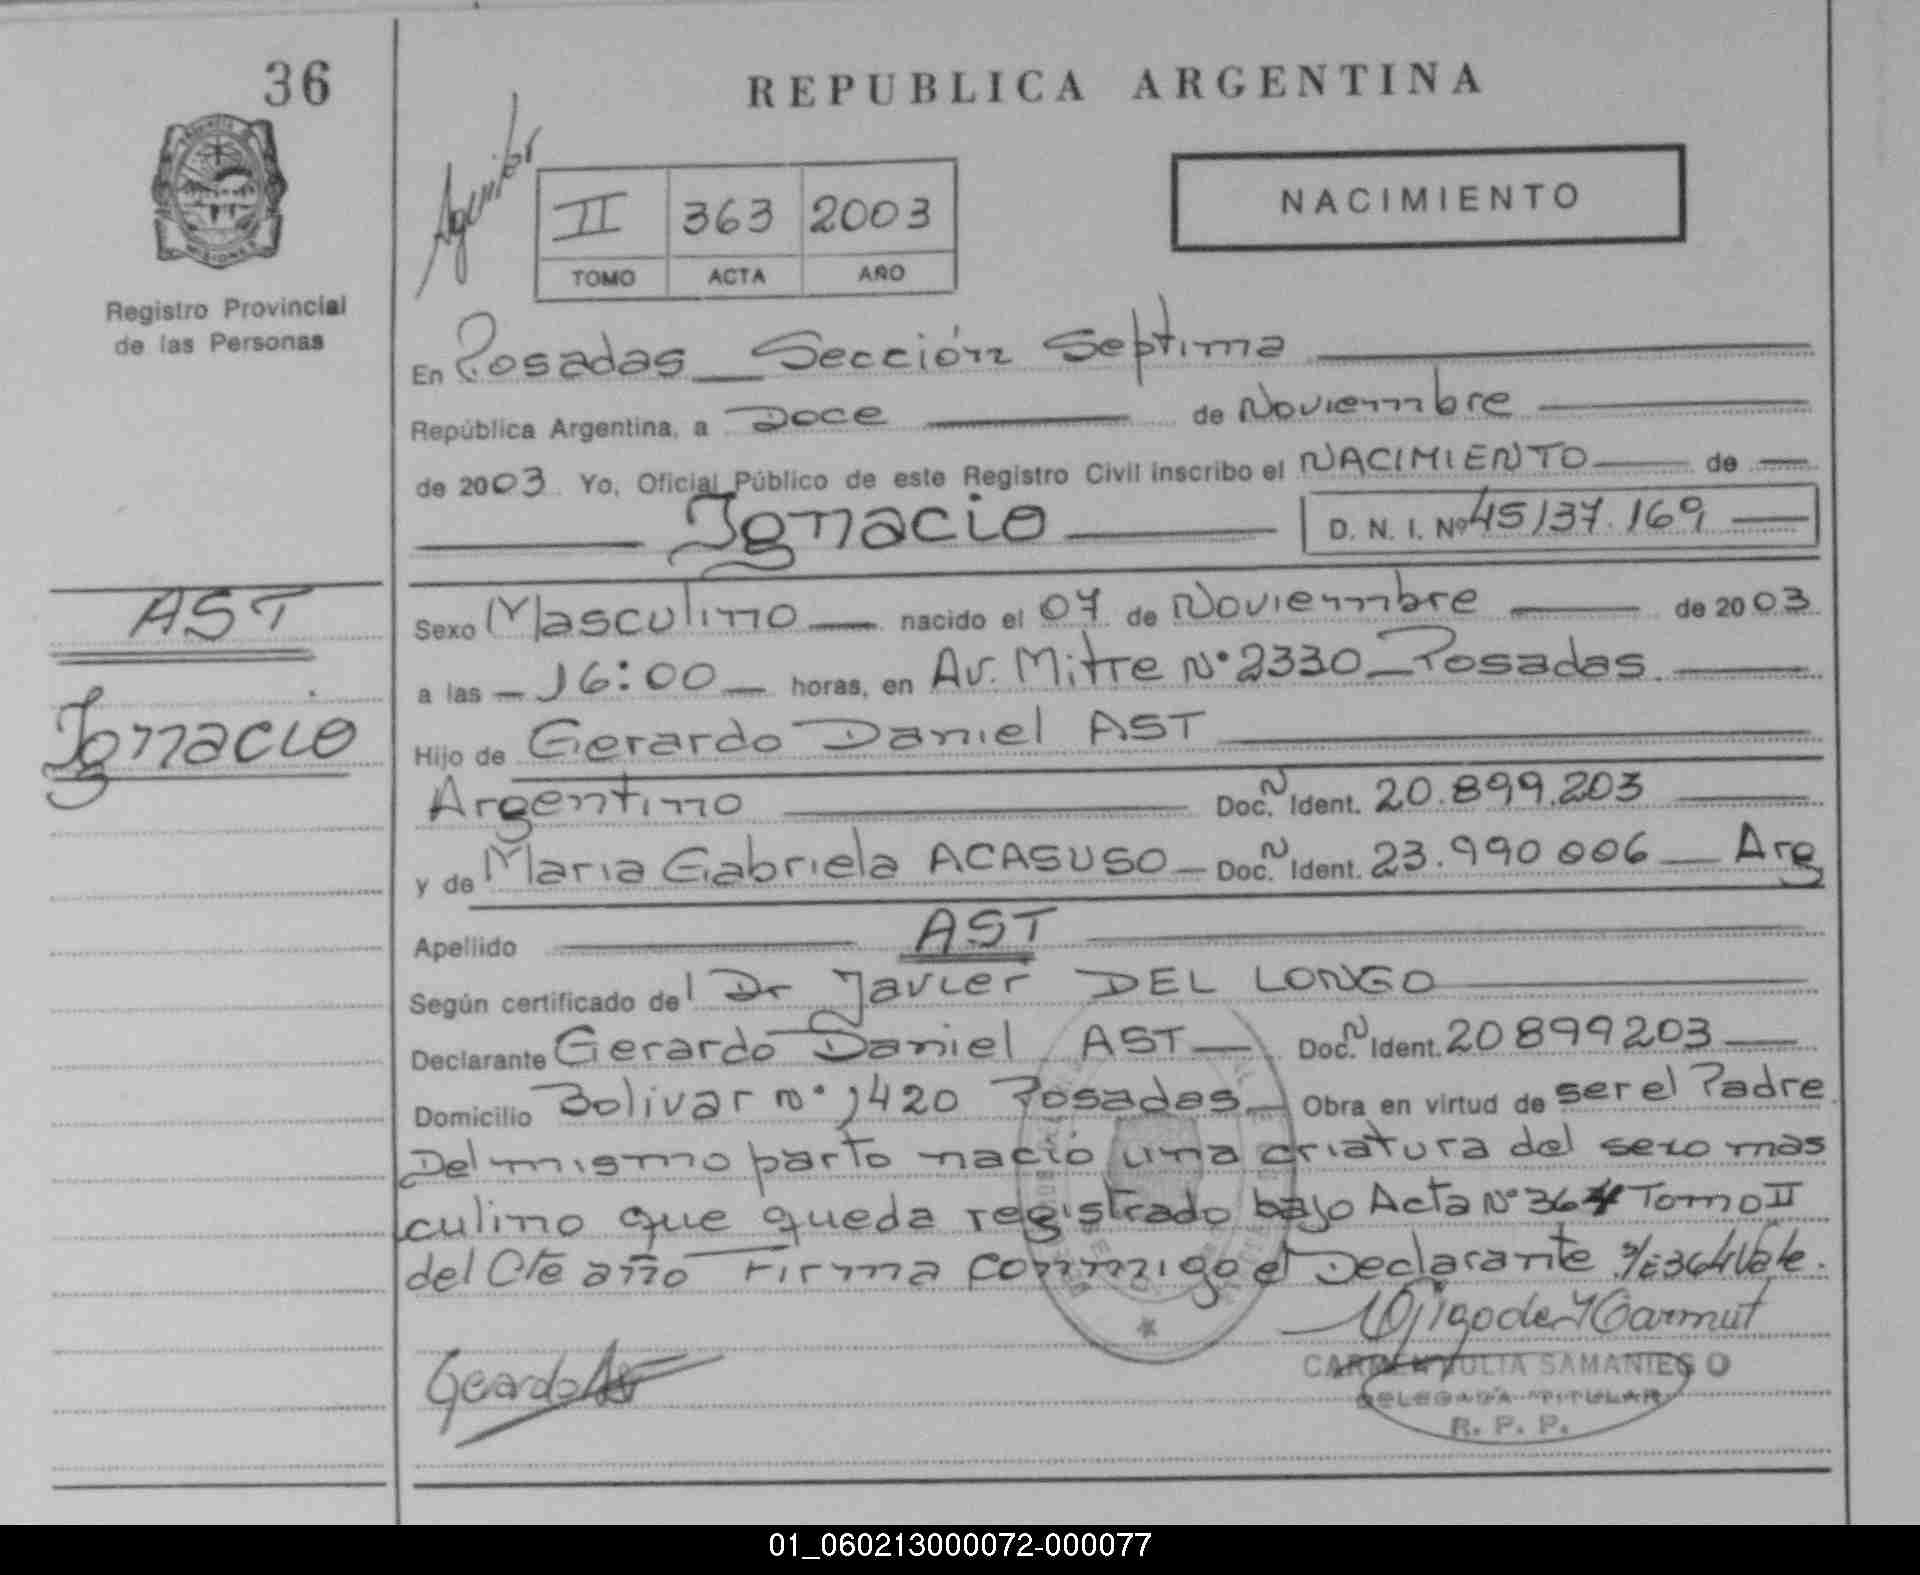 36
REPUBLICA ARGENTINA
NACIMIENTO
II 363 2003
TOMO ACTA AÑO
Registro Provincial
de las Personas
En Posadas — Sección Septima
República Argentina, a Doce de Noviembre
de 2003 Yo, Oficial Público de este Registro Civil inscribo el NACIMIENTO de
Ignacio D. N. I. Nº 45137.169
AST
Ignacio
Sexo Masculino nacido el 07 de Noviembre de 2003
a las 16:00 horas, en Av. Mitre Nº 2330 — Posadas
Hijo de Gerardo Daniel AST
Argentino Doc. N Ident. 20.899.203
y de Maria Gabriela ACASUSO — Doc. N Ident. 23.990 006 — Arg
Apellido AST
Según certificado del Dr Javier DEL LONGO
Declarante Gerardo Daniel AST — Doc. N Ident. 20899203
Domicilio Bolivar nº 1420 Posadas — Obra en virtud de ser el Padre
Del mismo parto nació una criatura del sexo mas
culino que queda registrado bajo Acta Nº 364 Tomo II
del Cte año Firma conmigo el Declarante S/E 364 Vale.
Gerardo Ast
CARMEN JULIA SAMANIEGO
DELEGADA TITULAR
R. P. P.
01_060213000072-000077